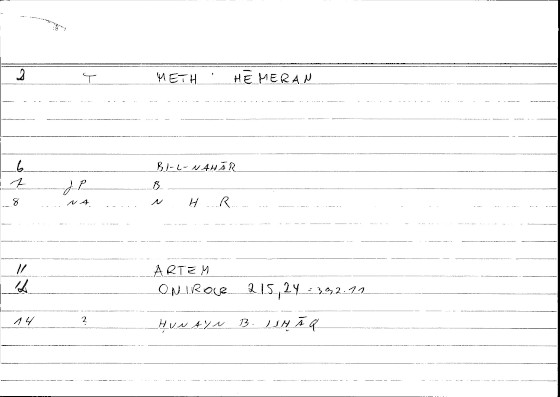 2 T METH' HĒMERAN
6 BI-L-NAHĀR
7 JP B
8 NA N H R
11 ARTEM
12 ONIROCR 215,24 = 392.11
14 ? ḤUNAYN B. ISḤĀQ